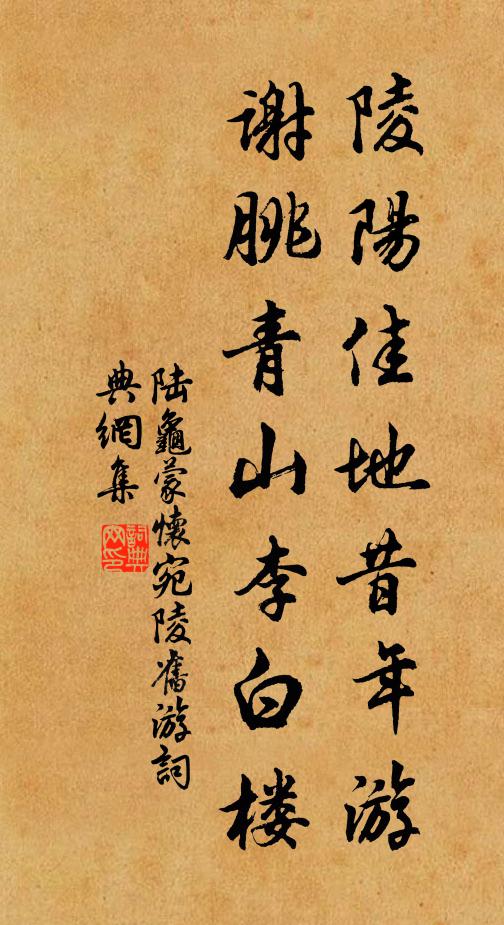 陵陽佳地昔年游
謝朓青山李白楼
陆龜蒙懷宛陵舊游詞
典網集
詞典
网印